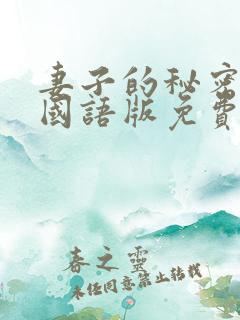 妻子的秘密
國語版免費
春之靈
未任同意禁止转载